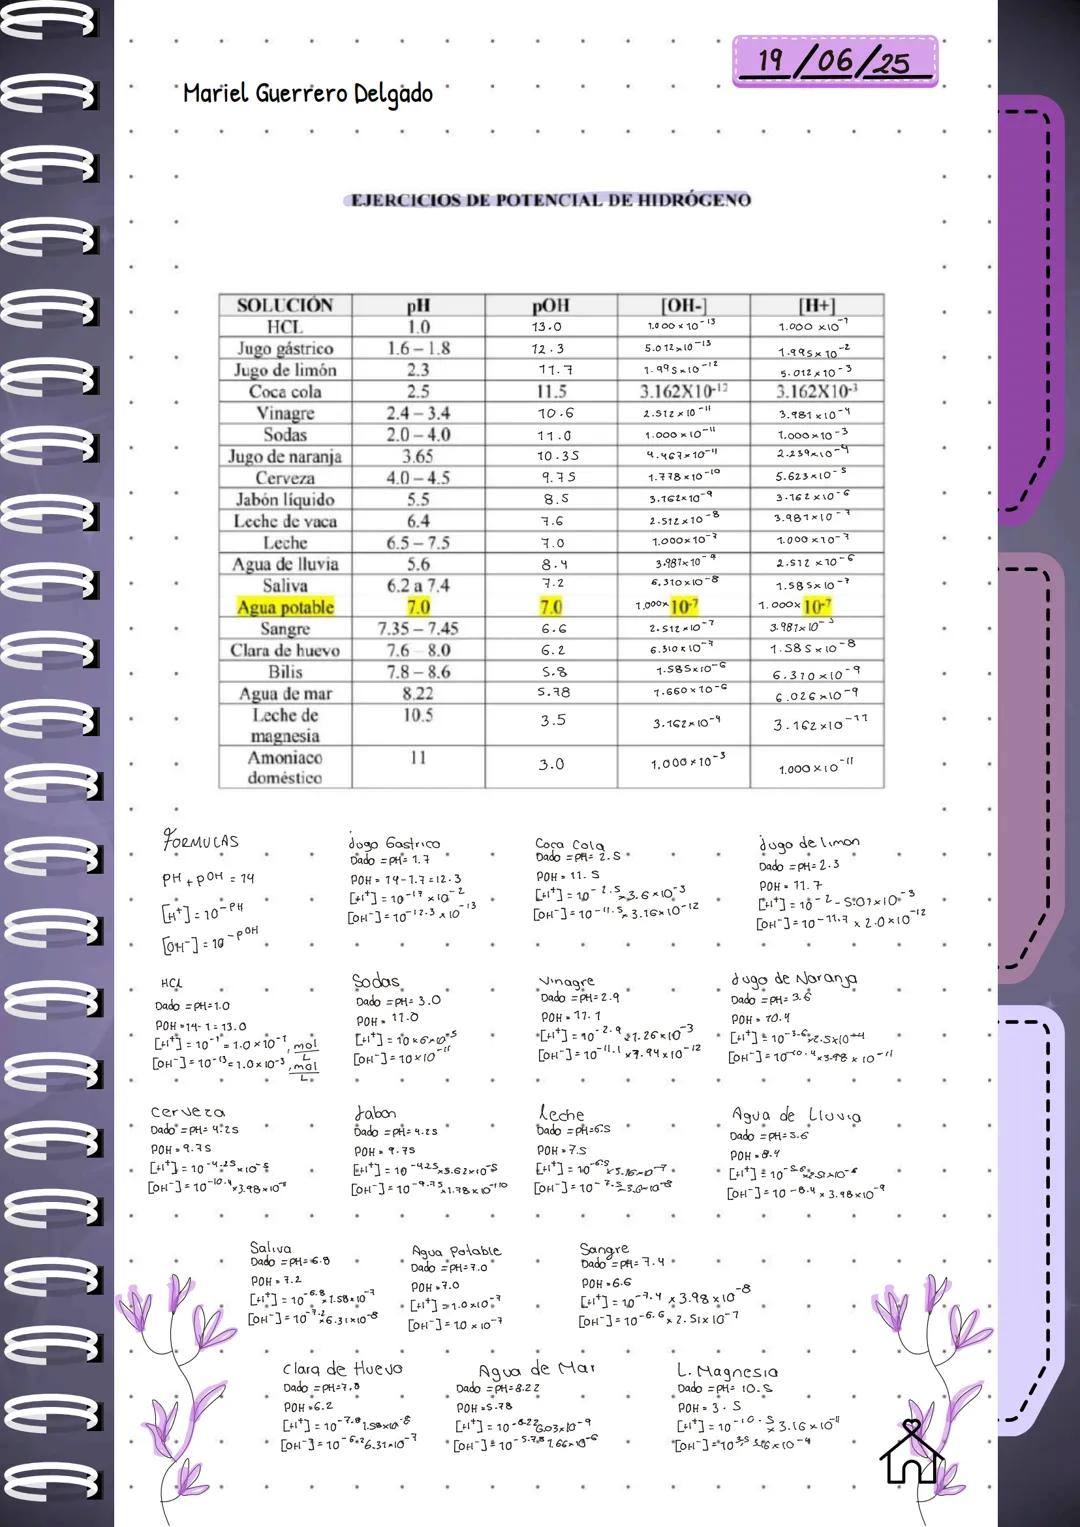 19/06/25
Mariel Guerrero Delgado
EJERCICIOS DE POTENCIAL DE HIDRÓGENO
SOLUCIÓN pH pOH [OH-] [H+]
HCL 1.0 13.0 1.000 x 10⁻¹³ 1.000 x10⁻¹
Jugo gástrico 1.6 – 1.8 12.3 5.012x10⁻¹³ 1.995x10⁻²
Jugo de limón 2.3 11.7 1.995x10⁻¹² 5.012x10⁻³
Coca cola 2.5 11.5 3.162X10⁻¹² 3.162X10⁻³
Vinagre 2.4 – 3.4 10.6 2.512x10⁻¹¹ 3.981x10⁻⁴
Sodas 2.0 – 4.0 11.0 1.000x10⁻¹¹ 1.000x10⁻³
Jugo de naranja 3.65 10.35 4.467x10⁻¹¹ 2.239x10⁻⁴
Cerveza 4.0 – 4.5 9.75 1.778x10⁻¹⁰ 5.623x10⁻⁵
Jabón líquido 5.5 8.5 3.162x10⁻⁹ 3.162x10⁻⁶
Leche de vaca 6.4 7.6 2.512x10⁻⁸ 3.981x10⁻⁷
Leche 6.5 – 7.5 7.0 1.000x10⁻⁷ 1.000x10⁻⁷
Agua de lluvia 5.6 8.4 3.981x10⁻⁹ 2.512x10⁻⁶
Saliva 6.2 a 7.4 7.2 6.310x10⁻⁸ 1.585x10⁻⁷
Agua potable 7.0 7.0 1.000x 10⁻⁷ 1.000x 10⁻⁷
Sangre 7.35 – 7.45 6.6 2.512x10⁻⁷ 3.981x10
Clara de huevo 7.6 8.0 6.2 6.310x10⁻⁷ 1.585x10⁻⁸
Bilis 7.8 – 8.6 5.8 1.585x10⁻⁶ 6.310x10⁻⁹
Agua de mar 8.22 5.78 1.660x10⁻⁶ 6.026x10⁻⁹
Leche de 10.5 3.5 3.162x10⁻⁴ 3.162x10⁻¹¹
magnesia
Amoniaco 11 3.0 1.000x10⁻³ 1.000x10⁻¹¹
doméstico
FORMULAS
PH + pOH = 14
[H⁺] = 10⁻ᵖᴴ
[OH⁻] = 10⁻ᵖᴼᴴ
Jugo Gastrico
Dado = pH= 1.7
POH = 14-1.7=12.3
[H⁺] = 10⁻¹⁷ x10⁻²
[OH⁻] = 10⁻¹²·³ x 10⁻¹³
Coca Cola
Dado = pH= 2.5
POH = 11.5
[H⁺] = 10⁻²·⁵ x3.6x10⁻³
[OH⁻] = 10⁻¹¹·⁵ x 3.16x10⁻¹²
jugo de limon
Dado =pH=2.3
POH = 11.7
[H⁺] = 10⁻² - 5.01x10⁻³
[OH⁻] = 10⁻¹¹·⁷ x 2.0x10⁻¹²
HCL
Dado =pH=1.0
POH =14-1=13.0
[H⁺] = 10⁻¹ = 1.0x10⁻¹, mol/L
[OH⁻] = 10⁻¹³ = 1.0x10⁻³, mol/L
Sodas
Dado =pH= 3.0
POH = 11.0
[H⁺] = 10x6x10⁻⁵
[OH⁻] = 10x10⁻¹¹
Vinagre
Dado =pH=2.9
POH = 11.1
[H⁺] = 10⁻²·⁹ x1.26x10⁻³
[OH⁻] = 10⁻¹¹·¹ x7.94x10⁻¹²
Jugo de Naranja
Dado =pH= 3.6
POH = 10.4
[H⁺] = 10⁻³·⁶ x2.5x10⁻⁴
[OH⁻] = 10⁻¹⁰·⁴ x3.98x10⁻¹¹
Cerveza
Dado =pH= 4.25
POH = 9.75
[H⁺] = 10⁻⁴·²⁵ x10⁻⁵
[OH⁻] = 10⁻¹⁰·⁴ x3.98x10
Jabon
Dado =pH= 4.25
POH = 9.75
[H⁺] = 10⁻⁴·²⁵ x5.62x10⁻⁵
[OH⁻] = 10⁻⁹·⁷⁵ x1.78x10⁻¹⁰
Leche
Dado =pH=6.5
POH = 7.5
[H⁺] = 10⁻⁶·⁵ x5.16x10⁻⁷
[OH⁻] = 10⁻⁷·⁵ x3.0x10⁻⁸
Agua de Lluvia
Dado =pH=5.6
POH = 8.4
[H⁺] = 10⁻⁵·⁶ x2.51x10⁻⁶
[OH⁻] = 10⁻⁸·⁴ x 3.98x10⁻⁹
Saliva
Dado =pH=6.8
POH = 7.2
[H⁺] = 10⁻⁶·⁸ x1.58x10⁻⁷
[OH⁻] = 10⁻⁷·² x6.31x10⁻⁸
Agua Potable
Dado =pH=7.0
POH =7.0
[H⁺] = 1.0x10⁻⁷
[OH⁻] = 1.0 x10⁻⁷
Sangre
Dado =pH= 7.4
POH =6.6
[H⁺] = 10⁻⁷·⁴ x 3.98x10⁻⁸
[OH⁻] = 10⁻⁶·⁶ x 2.51x10⁻⁷
Clara de Huevo
Dado =pH=7.8
POH =6.2
[H⁺] = 10⁻⁷·⁸ 1.58x10⁻⁸
[OH⁻] = 10⁻⁶·² 6.31x10⁻⁷
Agua de Mar
Dado =pH=8.22
POH =5.78
[H⁺] = 10⁻⁸·²² 6.03x10⁻⁹
[OH⁻] = 10⁻⁵·⁷⁸ 1.66x10⁻⁶
L. Magnesia
Dado =pH= 10.5
POH = 3.5
[H⁺] = 10⁻¹⁰·⁵ x3.16x10⁻¹¹
[OH⁻] = 10³·⁵ 3.16x10⁻⁴